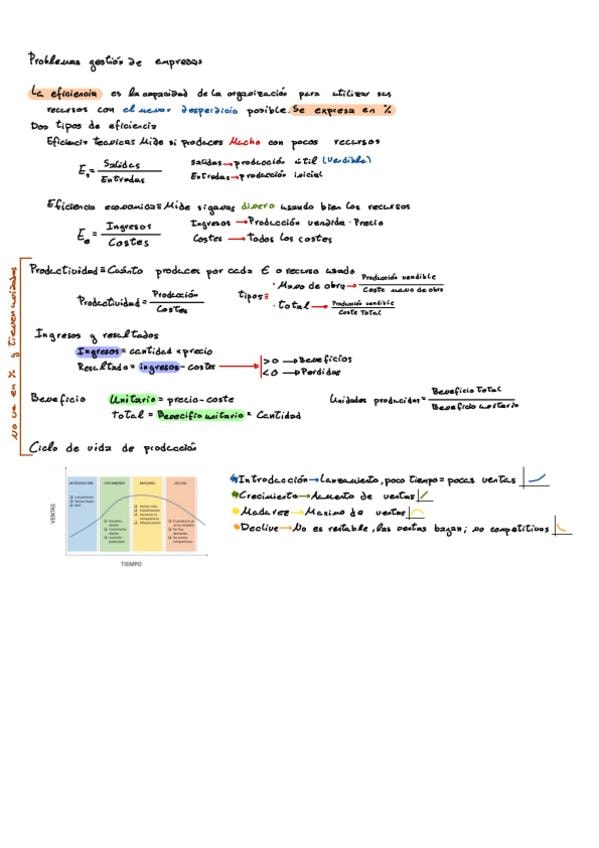 Problemas gestión de empresas
La eficiencia es la capacidad de la organización para utilizar sus
recursos con el menor desperdicio posible. Se expresa en %
Dos tipos de eficiencia
Eficiencia tecnica: Mide si produces Mucho con pocos recursos
Et = Salidas / Entradas
Salidas → producción útil (Vendible)
Entradas → producción inicial
Eficiencia economica: Mide si ganas dinero usando bien los recursos
Ee = Ingresos / Costes
Ingresos → Producción vendida · Precio
Costes → Todos los costes
No va en % y tienen unidades
Productividad ≡ Cuánto produces por cada € o recurso usado
Productividad = Producción / Costes
tipos:
· Mano de obra → Producción vendible / Coste mano de obra
· total → Producción vendible / Coste Total
Ingresos y resultados
Ingresos = cantidad × precio
Resultado = ingresos - costes
> 0 → Beneficios
< 0 → Perdidas
Beneficio
Unitario = precio - coste
total = Benecifio unitario × Cantidad
Unidades producidas = Beneficio Total / Beneficio unitario
Ciclo de vida de producción
INTRODUCCIÓN CRECIMIENTO MADUREZ DECLIVE
VENTAS
TIEMPO
Introducción → Lanzamiento, poco tiempo = pocas ventas
Crecimiento → Aumento de ventas
Madurez → Maximo de ventas
Declive → No es rentable, las ventas bajan; no competitivos